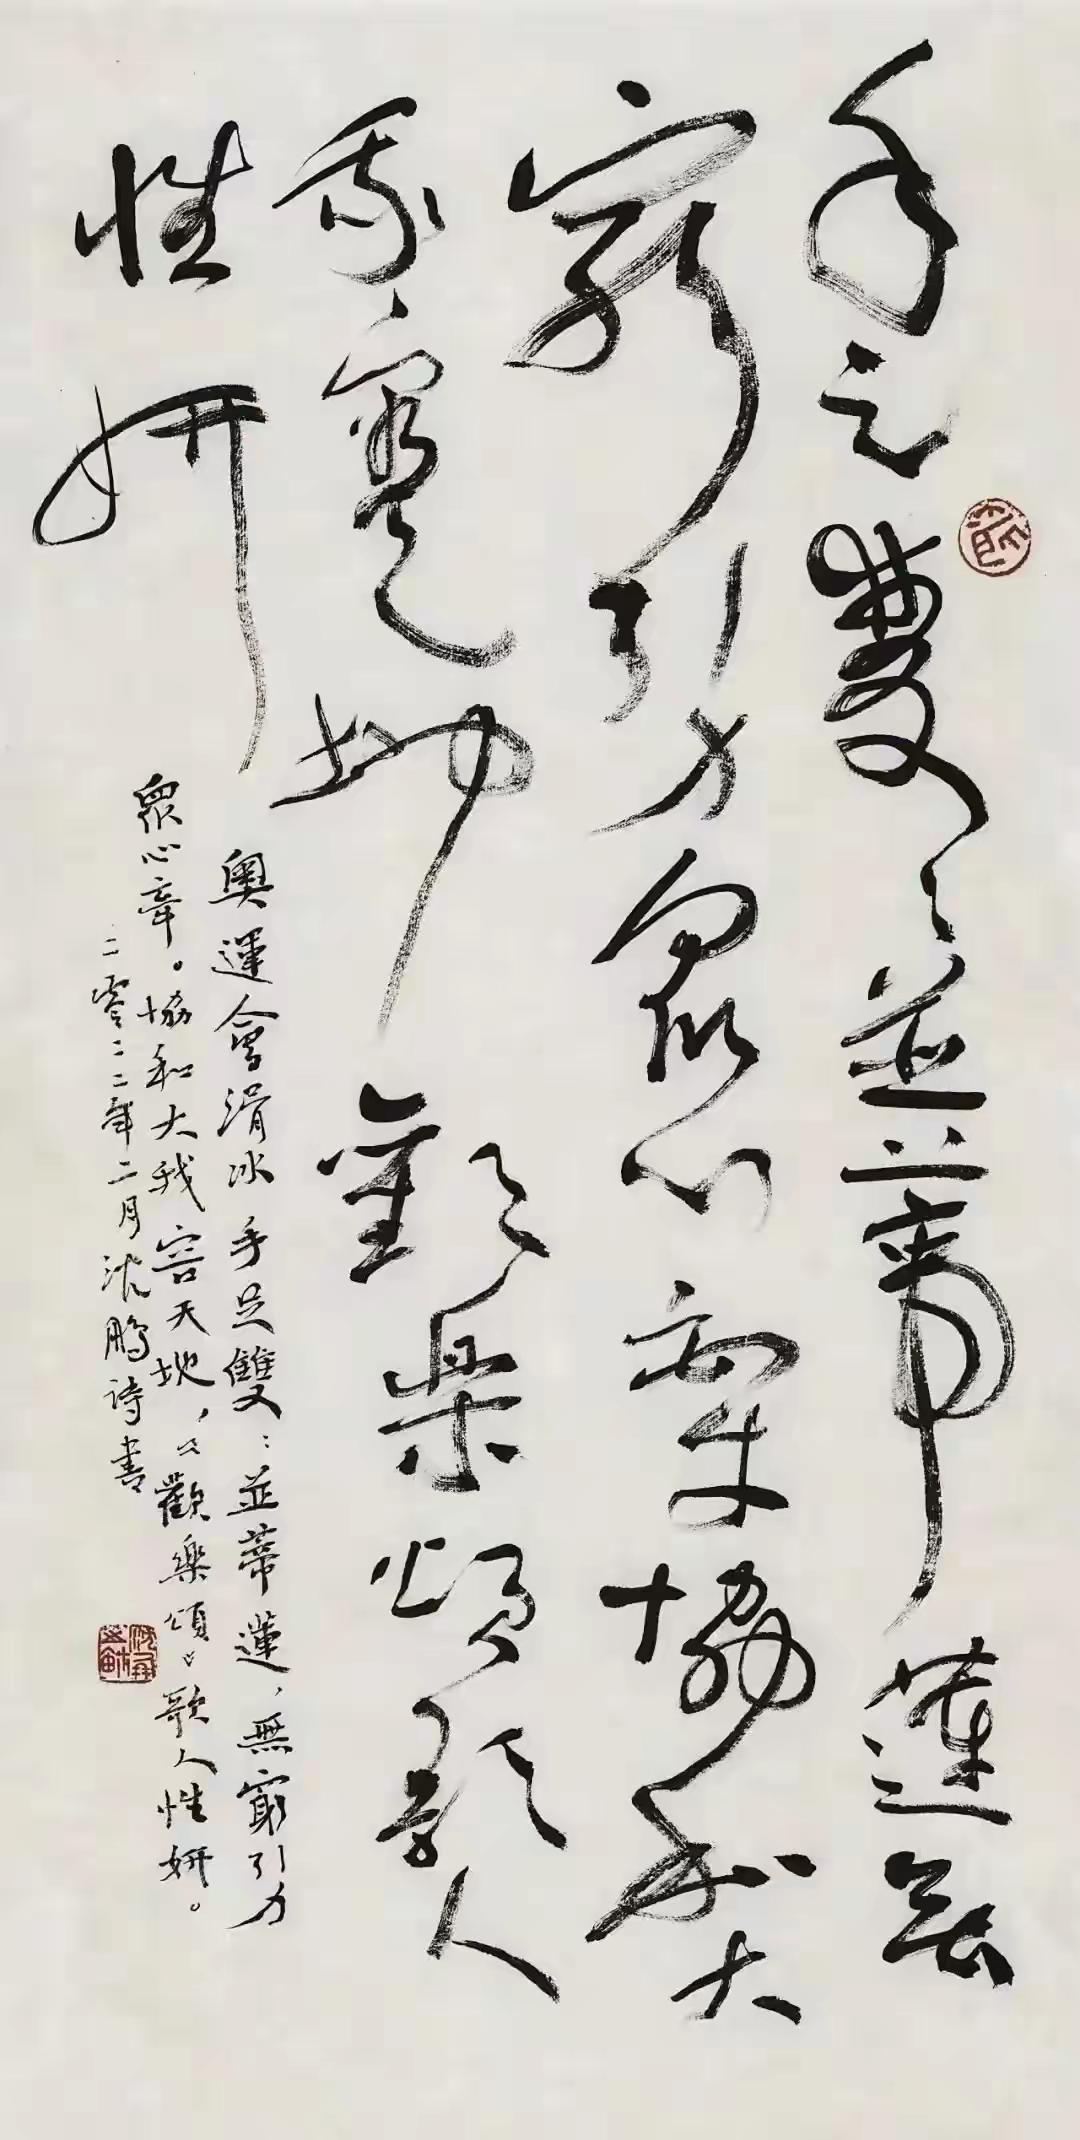 手足雙〻並蒂蓮無
窮引力眾心牽協和大
我容天地歡樂頌歌人
性妍
奧運會滑冰手足雙〻並蒂蓮，無窮引力
眾心牽。協和大我容天地，《歡樂頌》歌人性妍。
二零二二年二月沈鵬詩書